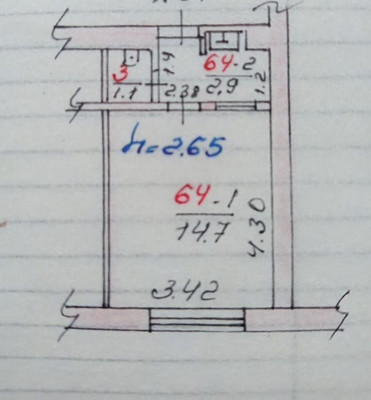 3
1.1
1.4
64-2
2,9
2.38
1.2
h=2.65
64-1
14.7
4.30
3.42